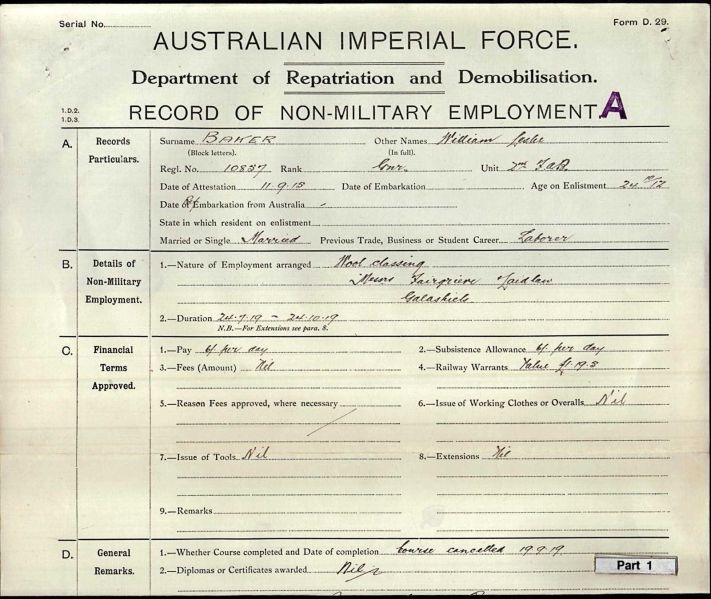 Serial No. Form D. 29.
AUSTRALIAN IMPERIAL FORCE.
Department of Repatriation and Demobilisation.
1.D.2.
1.D.3.
RECORD OF NON-MILITARY EMPLOYMENT. A
A. Records Particulars.
Surname BAKER Other Names William Leslie
(Block letters). (In full).
Regl. No. 10857 Rank Gnr. Unit 2nd F.A.B.
Date of Attestation 11.9.15 Date of Embarkation Age on Enlistment 24 10/12
Date of Embarkation from Australia -
State in which resident on enlistment
Married or Single Married Previous Trade, Business or Student Career Laborer
B. Details of Non-Military Employment.
1.—Nature of Employment arranged Wool classing
Messrs Fairgrieve Laidlaw
Galashiels
2.—Duration 24.7.19 - 24.10.19
N.B.—For Extensions see para. 8.
C. Financial Terms Approved.
1.—Pay 6/ per day 2.—Subsistence Allowance 6/ per day
3.—Fees (Amount) Nil 4.—Railway Warrants Value £1.19.3
5.—Reason Fees approved, where necessary 6.—Issue of Working Clothes or Overalls Nil
7.—Issue of Tools Nil 8.—Extensions Nil
9.—Remarks
D. General Remarks.
1.—Whether Course completed and Date of completion Course cancelled 19.9.19
2.—Diplomas or Certificates awarded Nil
Part 1